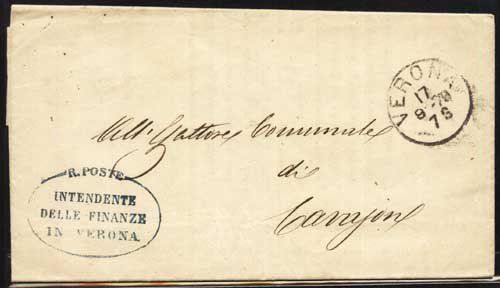 VERONA
17
9-78
7S
All' Esattore Comunale
di
Cavajon
R. POSTE
INTENDENTE
DELLE FINANZE
IN VERONA